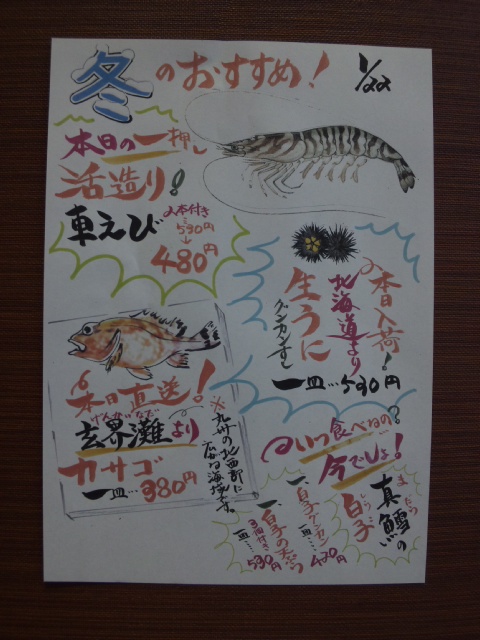 冬のおすすめ!
1/22
本日の一押し
活造り!
車えび
2本付き
590円
↓
480円
本日入荷!
北海道より
生うに
グンカンすし
一皿…590円
本日直送!
げんかいなだ
玄界灘より
カサゴ
一皿…380円
※九州の北西部に
広がる海域です。
いつ食べるの?
今でしょ!
まだら
真鱈の
しらこ
白子
一、白子グンカン
一皿…420円
一、白子の天ぷら
3個付き
一皿…590円